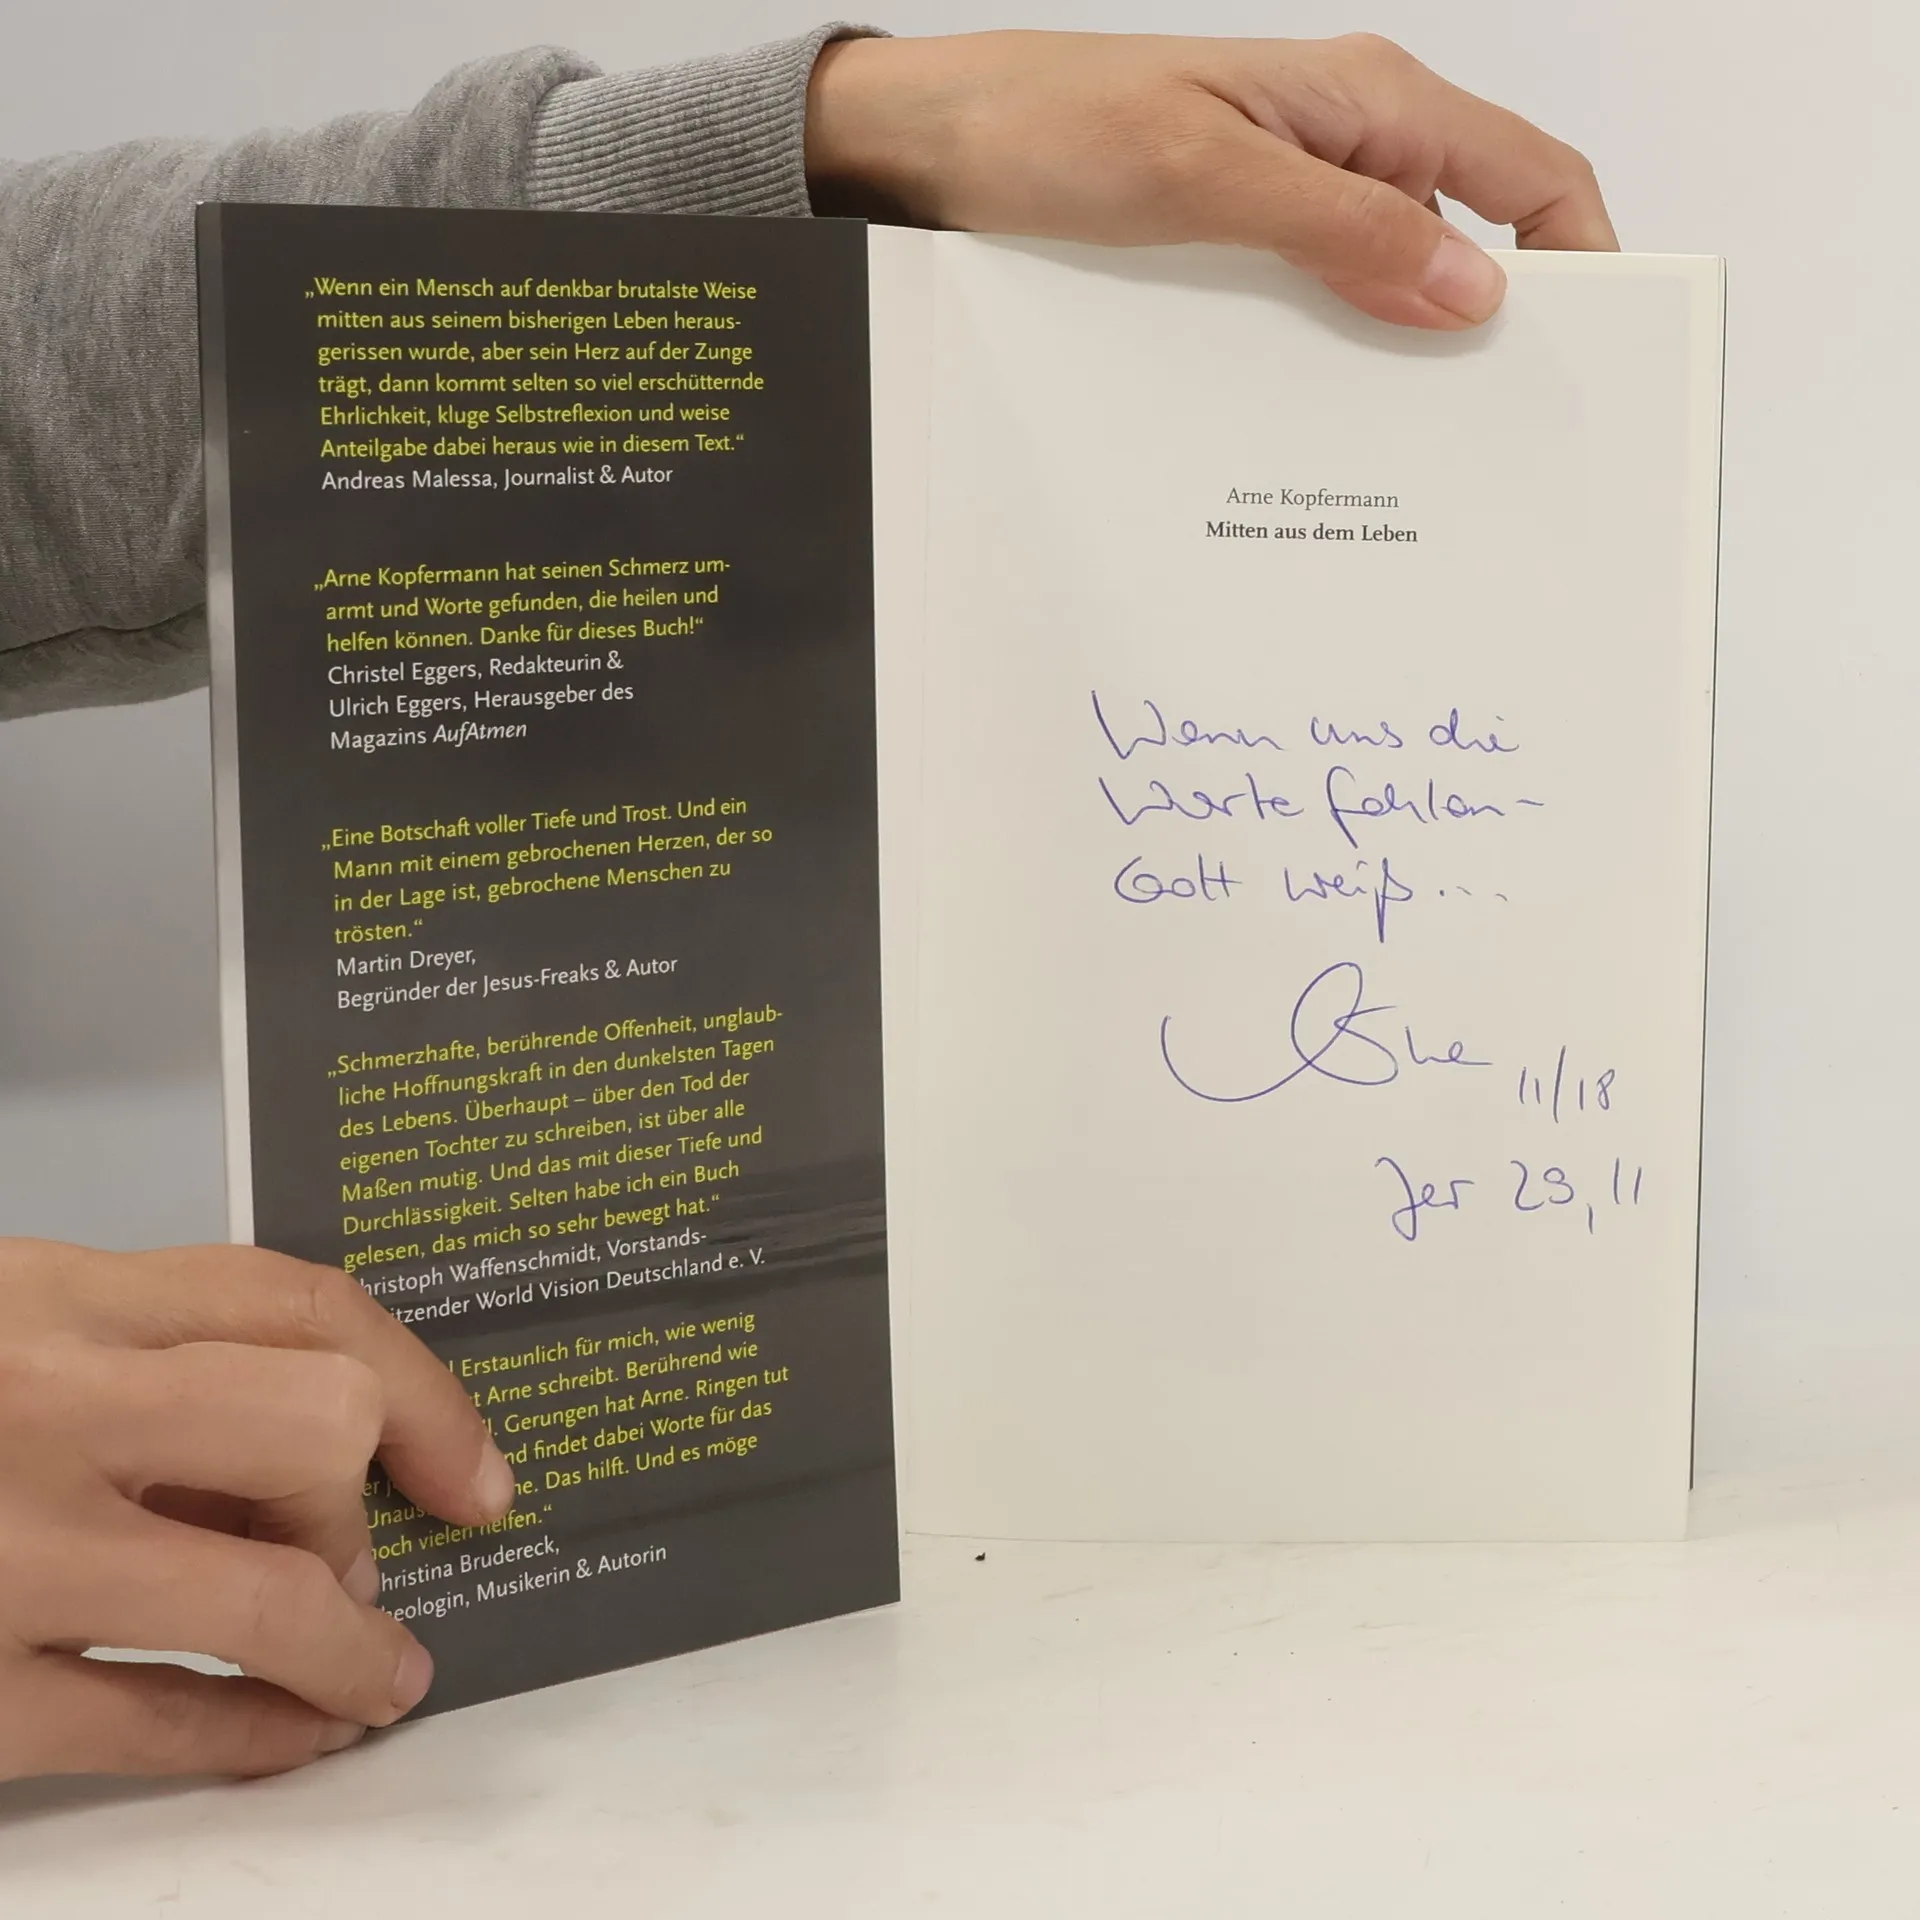 „Wenn ein Mensch auf denkbar brutalste Weise
mitten aus seinem bisherigen Leben heraus-
gerissen wurde, aber sein Herz auf der Zunge
trägt, dann kommt selten so viel erschütternde
Ehrlichkeit, kluge Selbstreflexion und weise
Anteilgabe dabei heraus wie in diesem Text.“
Andreas Malessa, Journalist & Autor
„Arne Kopfermann hat seinen Schmerz um-
armt und Worte gefunden, die heilen und
helfen können. Danke für dieses Buch!“
Christel Eggers, Redakteurin &
Ulrich Eggers, Herausgeber des
Magazins AufAtmen
„Eine Botschaft voller Tiefe und Trost. Und ein
Mann mit einem gebrochenen Herzen, der so
in der Lage ist, gebrochene Menschen zu
trösten.“
Martin Dreyer,
Begründer der Jesus-Freaks & Autor
„Schmerzhafte, berührende Offenheit, unglaub-
liche Hoffnungskraft in den dunkelsten Tagen
des Lebens. Überhaupt – über den Tod der
eigenen Tochter zu schreiben, ist über alle
Maßen mutig. Und das mit dieser Tiefe und
Durchlässigkeit. Selten habe ich ein Buch
gelesen, das mich so sehr bewegt hat.“
hristoph Waffenschmidt, Vorstands-
itzender World Vision Deutschland e. V.
Erstaunlich für mich, wie wenig
t Arne schreibt. Berührend wie
Gerungen hat Arne. Ringen tut
nd findet dabei Worte für das
Das hilft. Und es möge
noch vielen helfen.“
hristina Brudereck,
heologin, Musikerin & Autorin
Arne Kopfermann
Mitten aus dem Leben
Wenn uns die
Worte fehlen –
Gott weiß...
Arne 11/18
Jer 29,11